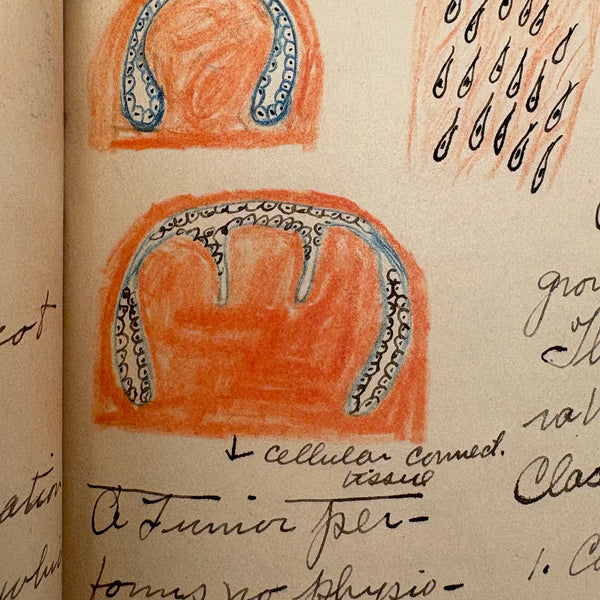 cot
ation
whi
↓ cellular connect.
tissue
A Tumor per-
forms no physio-
grou
Th
Clas
1. C